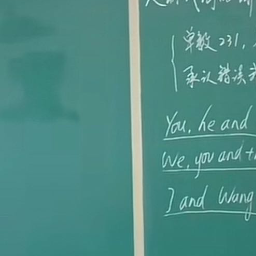 单数 231,
承认错误
You, he and
We, you and
I and Wang